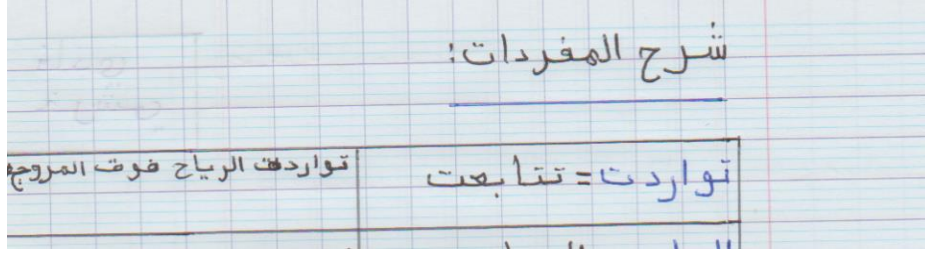 شرح المفردات:
تواردت = تتابعت
تواردت الرياح فوق المروج